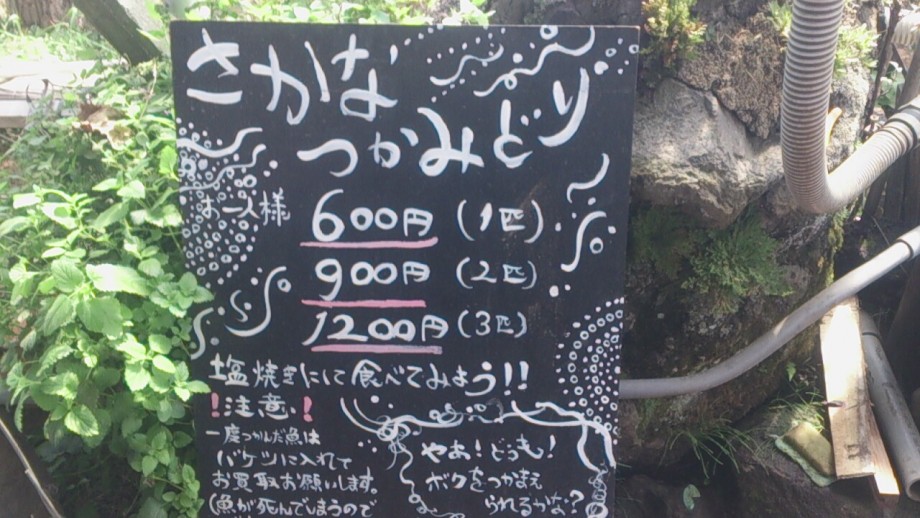 さかな
つかみどり
お一人様 600円 (1匹)
900円 (2匹)
1200円 (3匹)
塩焼きにして食べてみよう!!
!注意!
一度つかんだ魚は
バケツに入れて
お買取お願いします。
(魚が死んでしまうので
やあ!どうも!
ボクをつかまえ
られるかな?